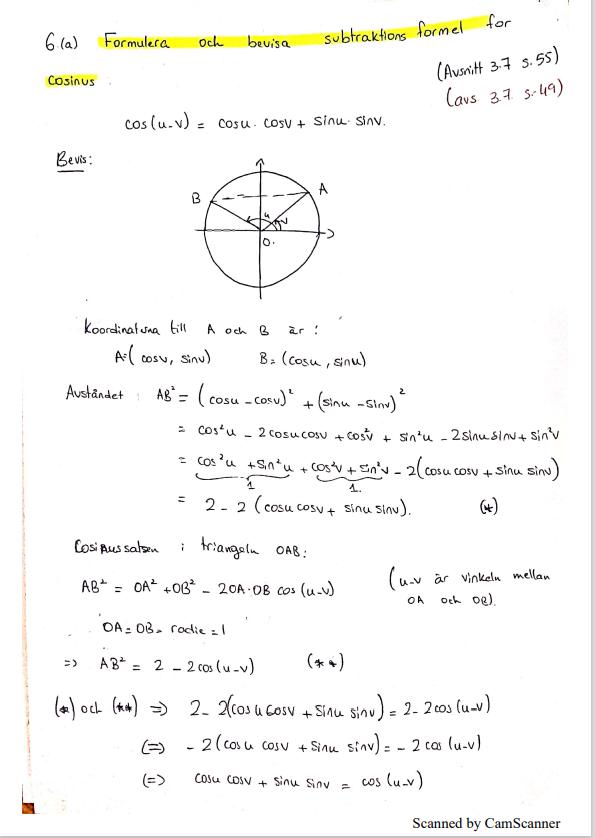 6 (a) Formulera och bevisa subtraktions formel for
cosinus
(Avsnitt 3.7 s.55)
(avs 3.7. s.49)
cos(u-v) = cosu. cosv + sinu. sinv.
Bevis:
B
A
u
v
O.
Koordinaterna till A och B är :
A=( cosv, sinv) B= (cosu , sinu)
Avståndet : AB² = (cosu - cosv)² + (sinu - sinv)²
= cos²u - 2cosucosv + cos²v + sin²u - 2sinusinv + sin²v
= cos²u + sin²u + cos²v + sin²v - 2(cosu cosv + sinu sinv)
1 1.
= 2 - 2 (cosu cosv + sinu sinv). (*)
Cosinussatsen i triangeln OAB:
AB² = OA² + OB² - 2OA·OB cos (u-v) (u-v är vinkeln mellan
OA och OB).
OA = OB = radie = 1
=> AB² = 2 - 2cos(u-v) (**)
(*) och (**) => 2 - 2(cosu cosv + sinu sinv) = 2 - 2cos (u-v)
(=) - 2 (cosu cosv + sinu sinv) = - 2 cos (u-v)
(=) cosu cosv + sinu sinv = cos (u-v)
Scanned by CamScanner